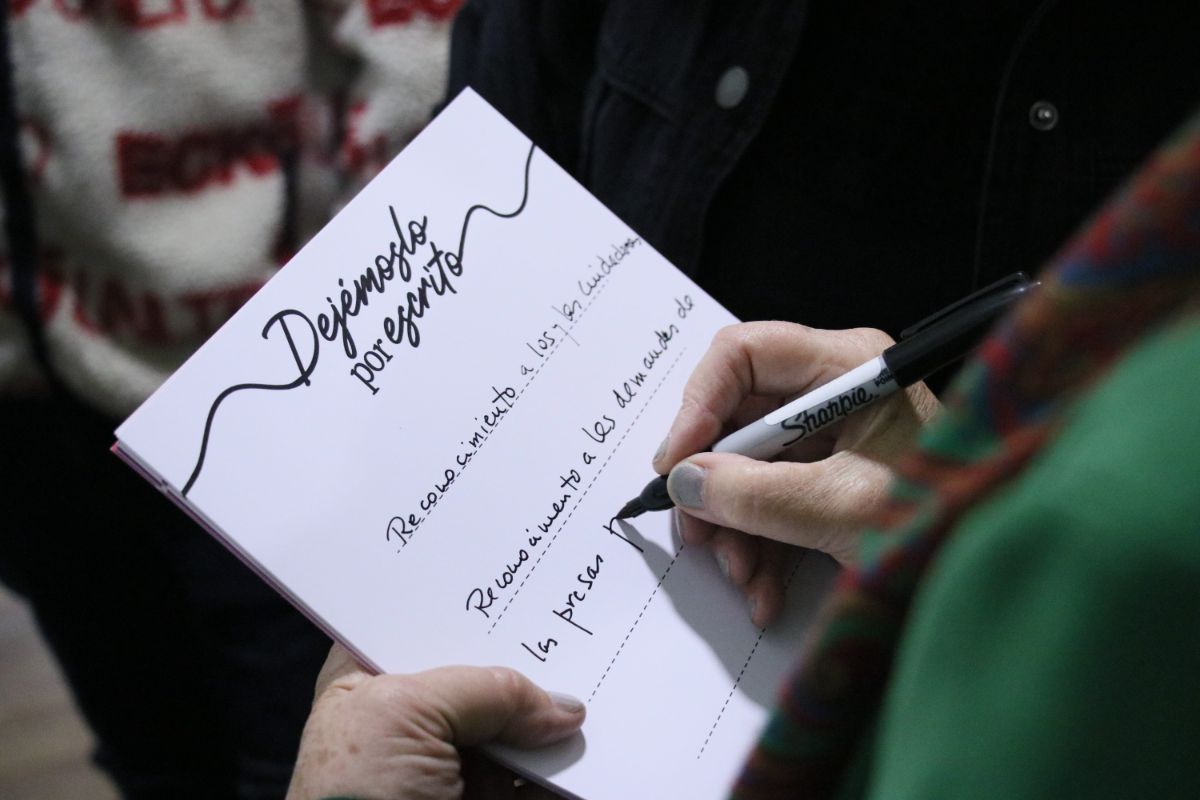 Dejémoslo
por escrito
Reconocimiento a los y las cuidadoras
Reconocimento a les demandes de
las presas p
Sharpie